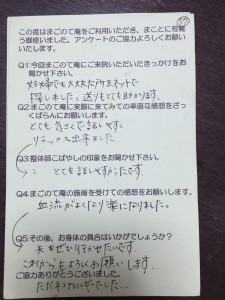 この度はまごのて庵をご利用いただき、まことに有難
う御座いました。アンケートのご協力よろしくお願い
いたします。
Q1今回まごのて庵にご来訪いただいたきっかけをお
聞かせ下さい。
妊婦でも大丈夫な所をネットで
探しました。送りもとても助かります。
Q2まごのて庵に実際に来てみての率直な感想をざっ
くばらんにお願いします。
とても気さくで話しやすく
リラックス出来ました
Q3整体師こばやしの印象をお聞かせ下さい。
とても話しやすかったです。
Q4まごのて庵の施術を受けての感想をお願いします。
血流がよくなり楽になりました。
Q5その後、お身体の具合はいかがでしょうか?
夫もぜひ行かせたいです。
これからもよろしくお願いします
ご協力ありがとうございました。